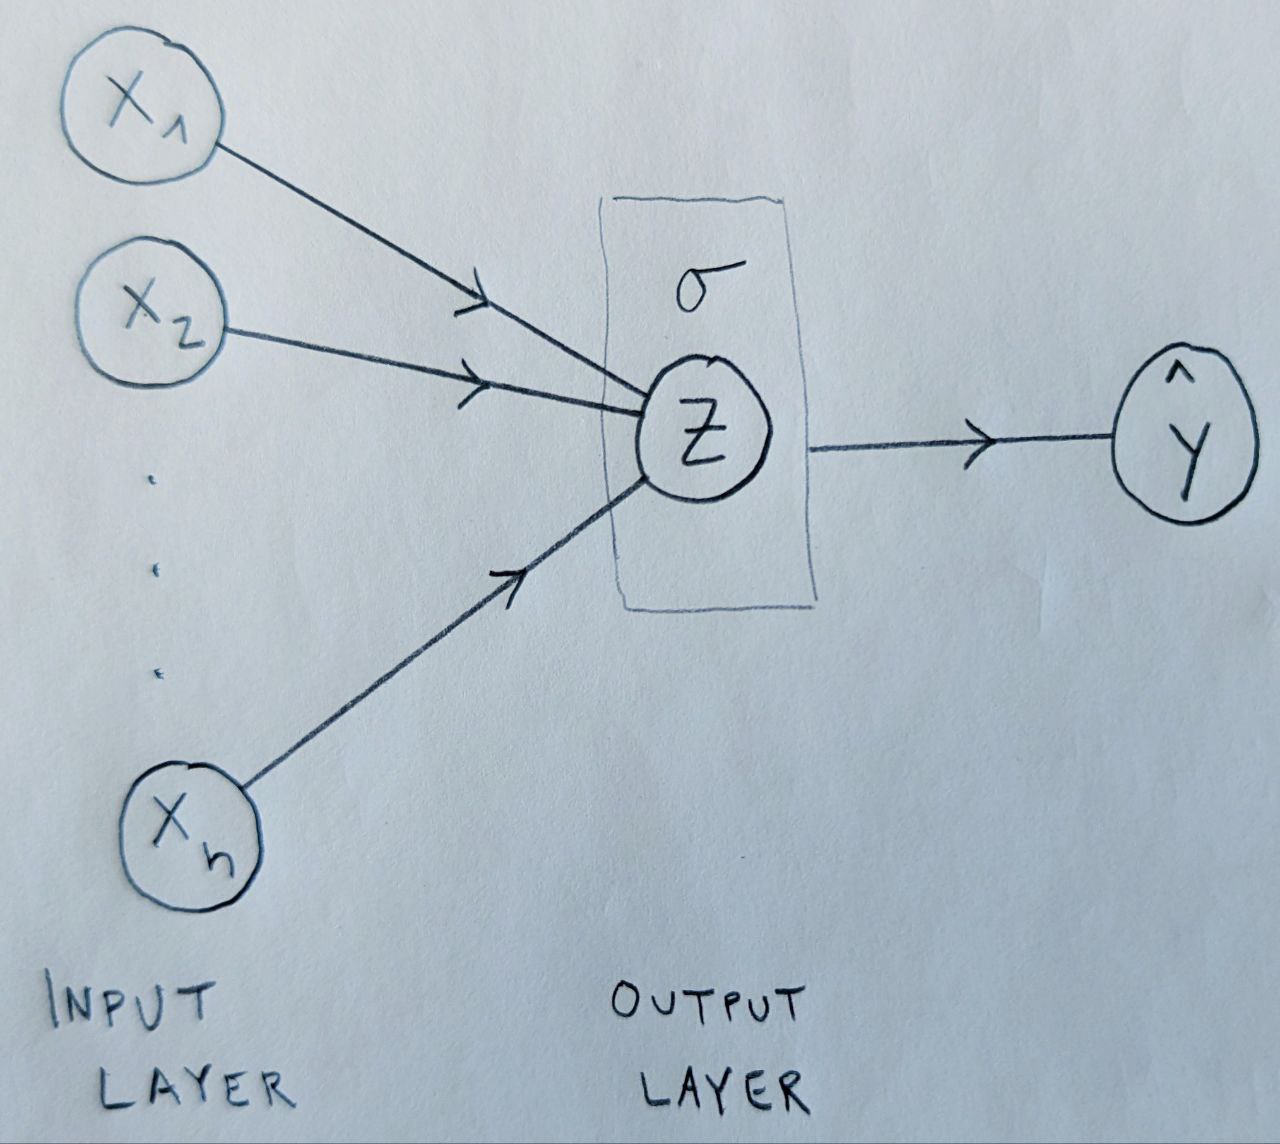 X1
X2
σ
Z
ŷ
.
.
.
Xn
INPUT
LAYER
OUTPUT
LAYER